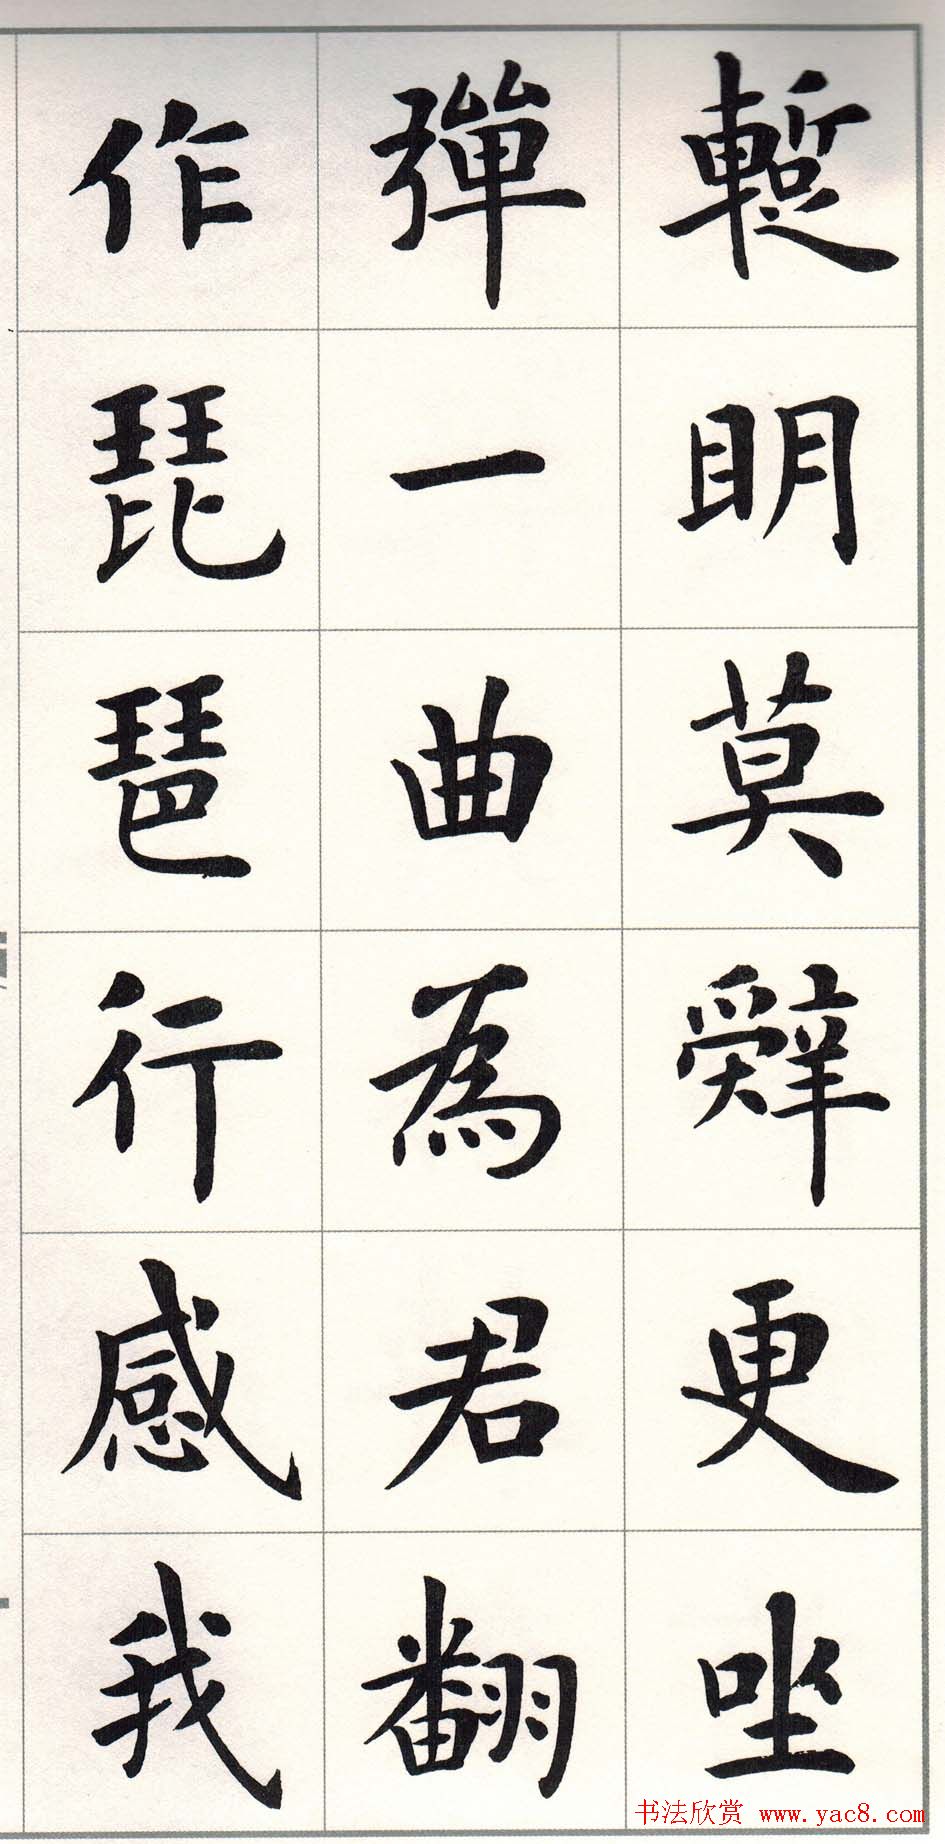 蹔眀莫辤更㘴
彈一曲為君翻
作琵琶行感我
书法欣赏 www.yac8.com